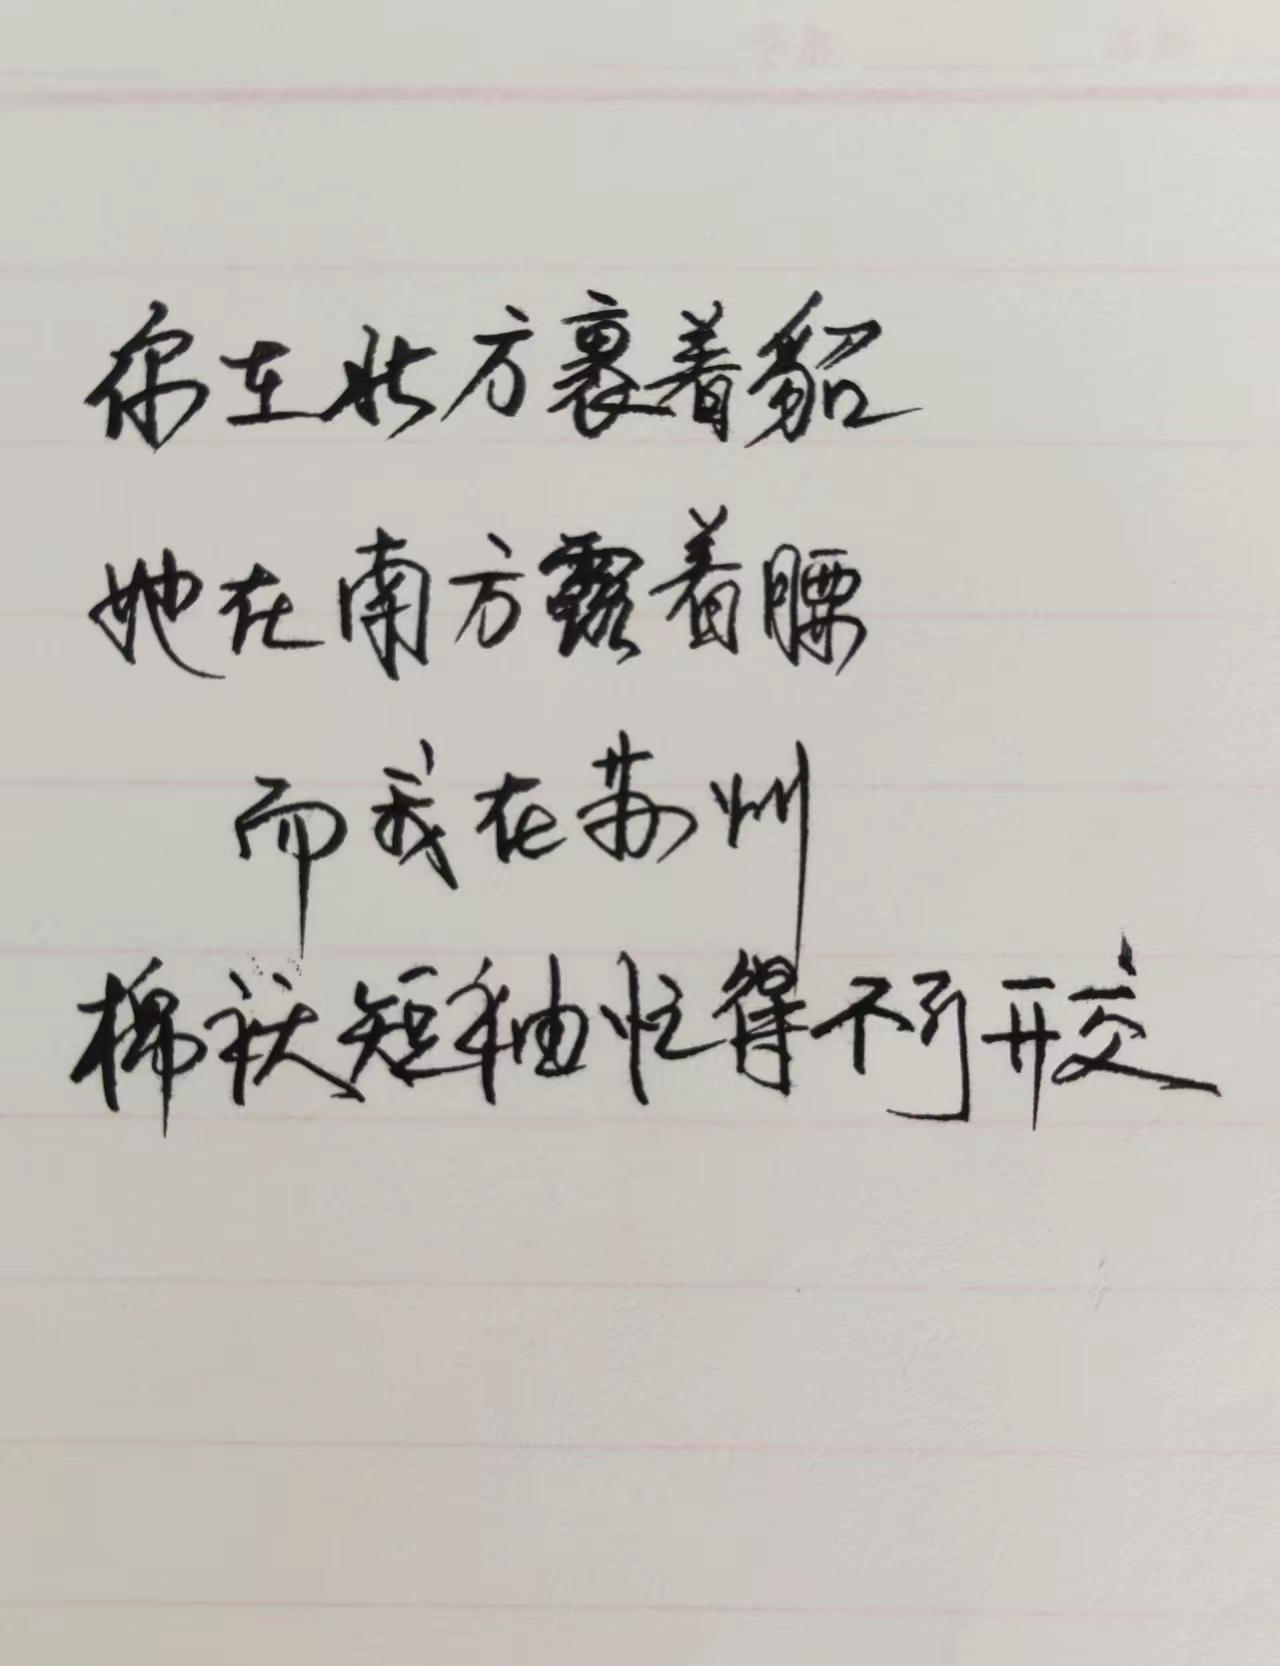 你在北方裹着貂
她在南方露着腰
而我在苏州
棉袄短袖忙得不可开交